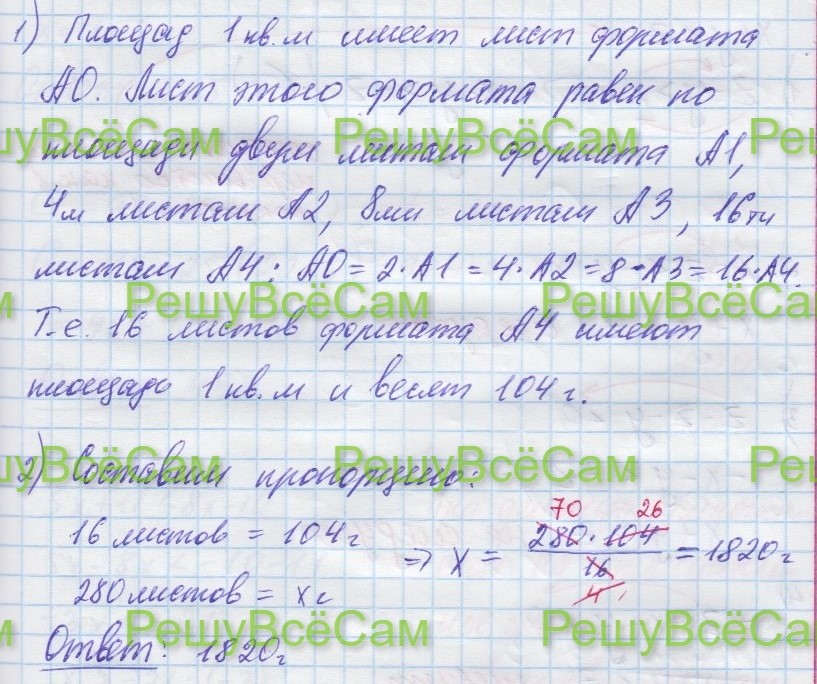 1) Площад 1 кв.м имеет лист формата
А0. Лист этого формата равен по
площади двум листам формата А1,
4м листам А2, 8ми листам А3, 16ти
листам А4: А0 = 2·А1 = 4·А2 = 8·А3 = 16·А4.
Т.е. 16 листов формата А4 имеют
площадь 1 кв.м и весят 104 г.
2) Составим пропорцию:
16 листов = 104 г
280 листов = х г
70 26
=> X = 280·104 / 16 = 1820 г
4
Ответ: 1820 г
РешуВсёСам
РешуВсёСам
РешуВсёСам
РешуВсёСам
РешуВсёСам
РешуВсёСам
РешуВсёСам
РешуВсёСам